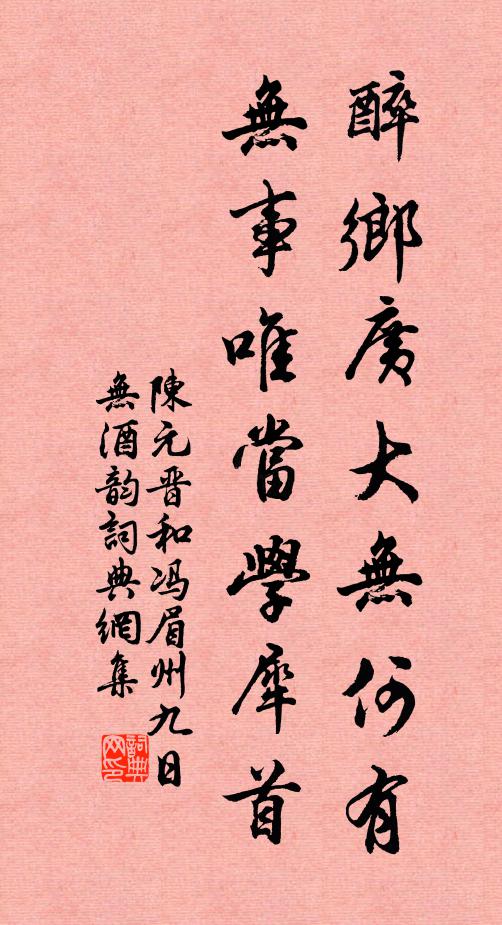 醉鄉廣大無何有
無事唯當學犀首
陳元晋和冯眉州九日
無酒韵詞典網集
詞典网印